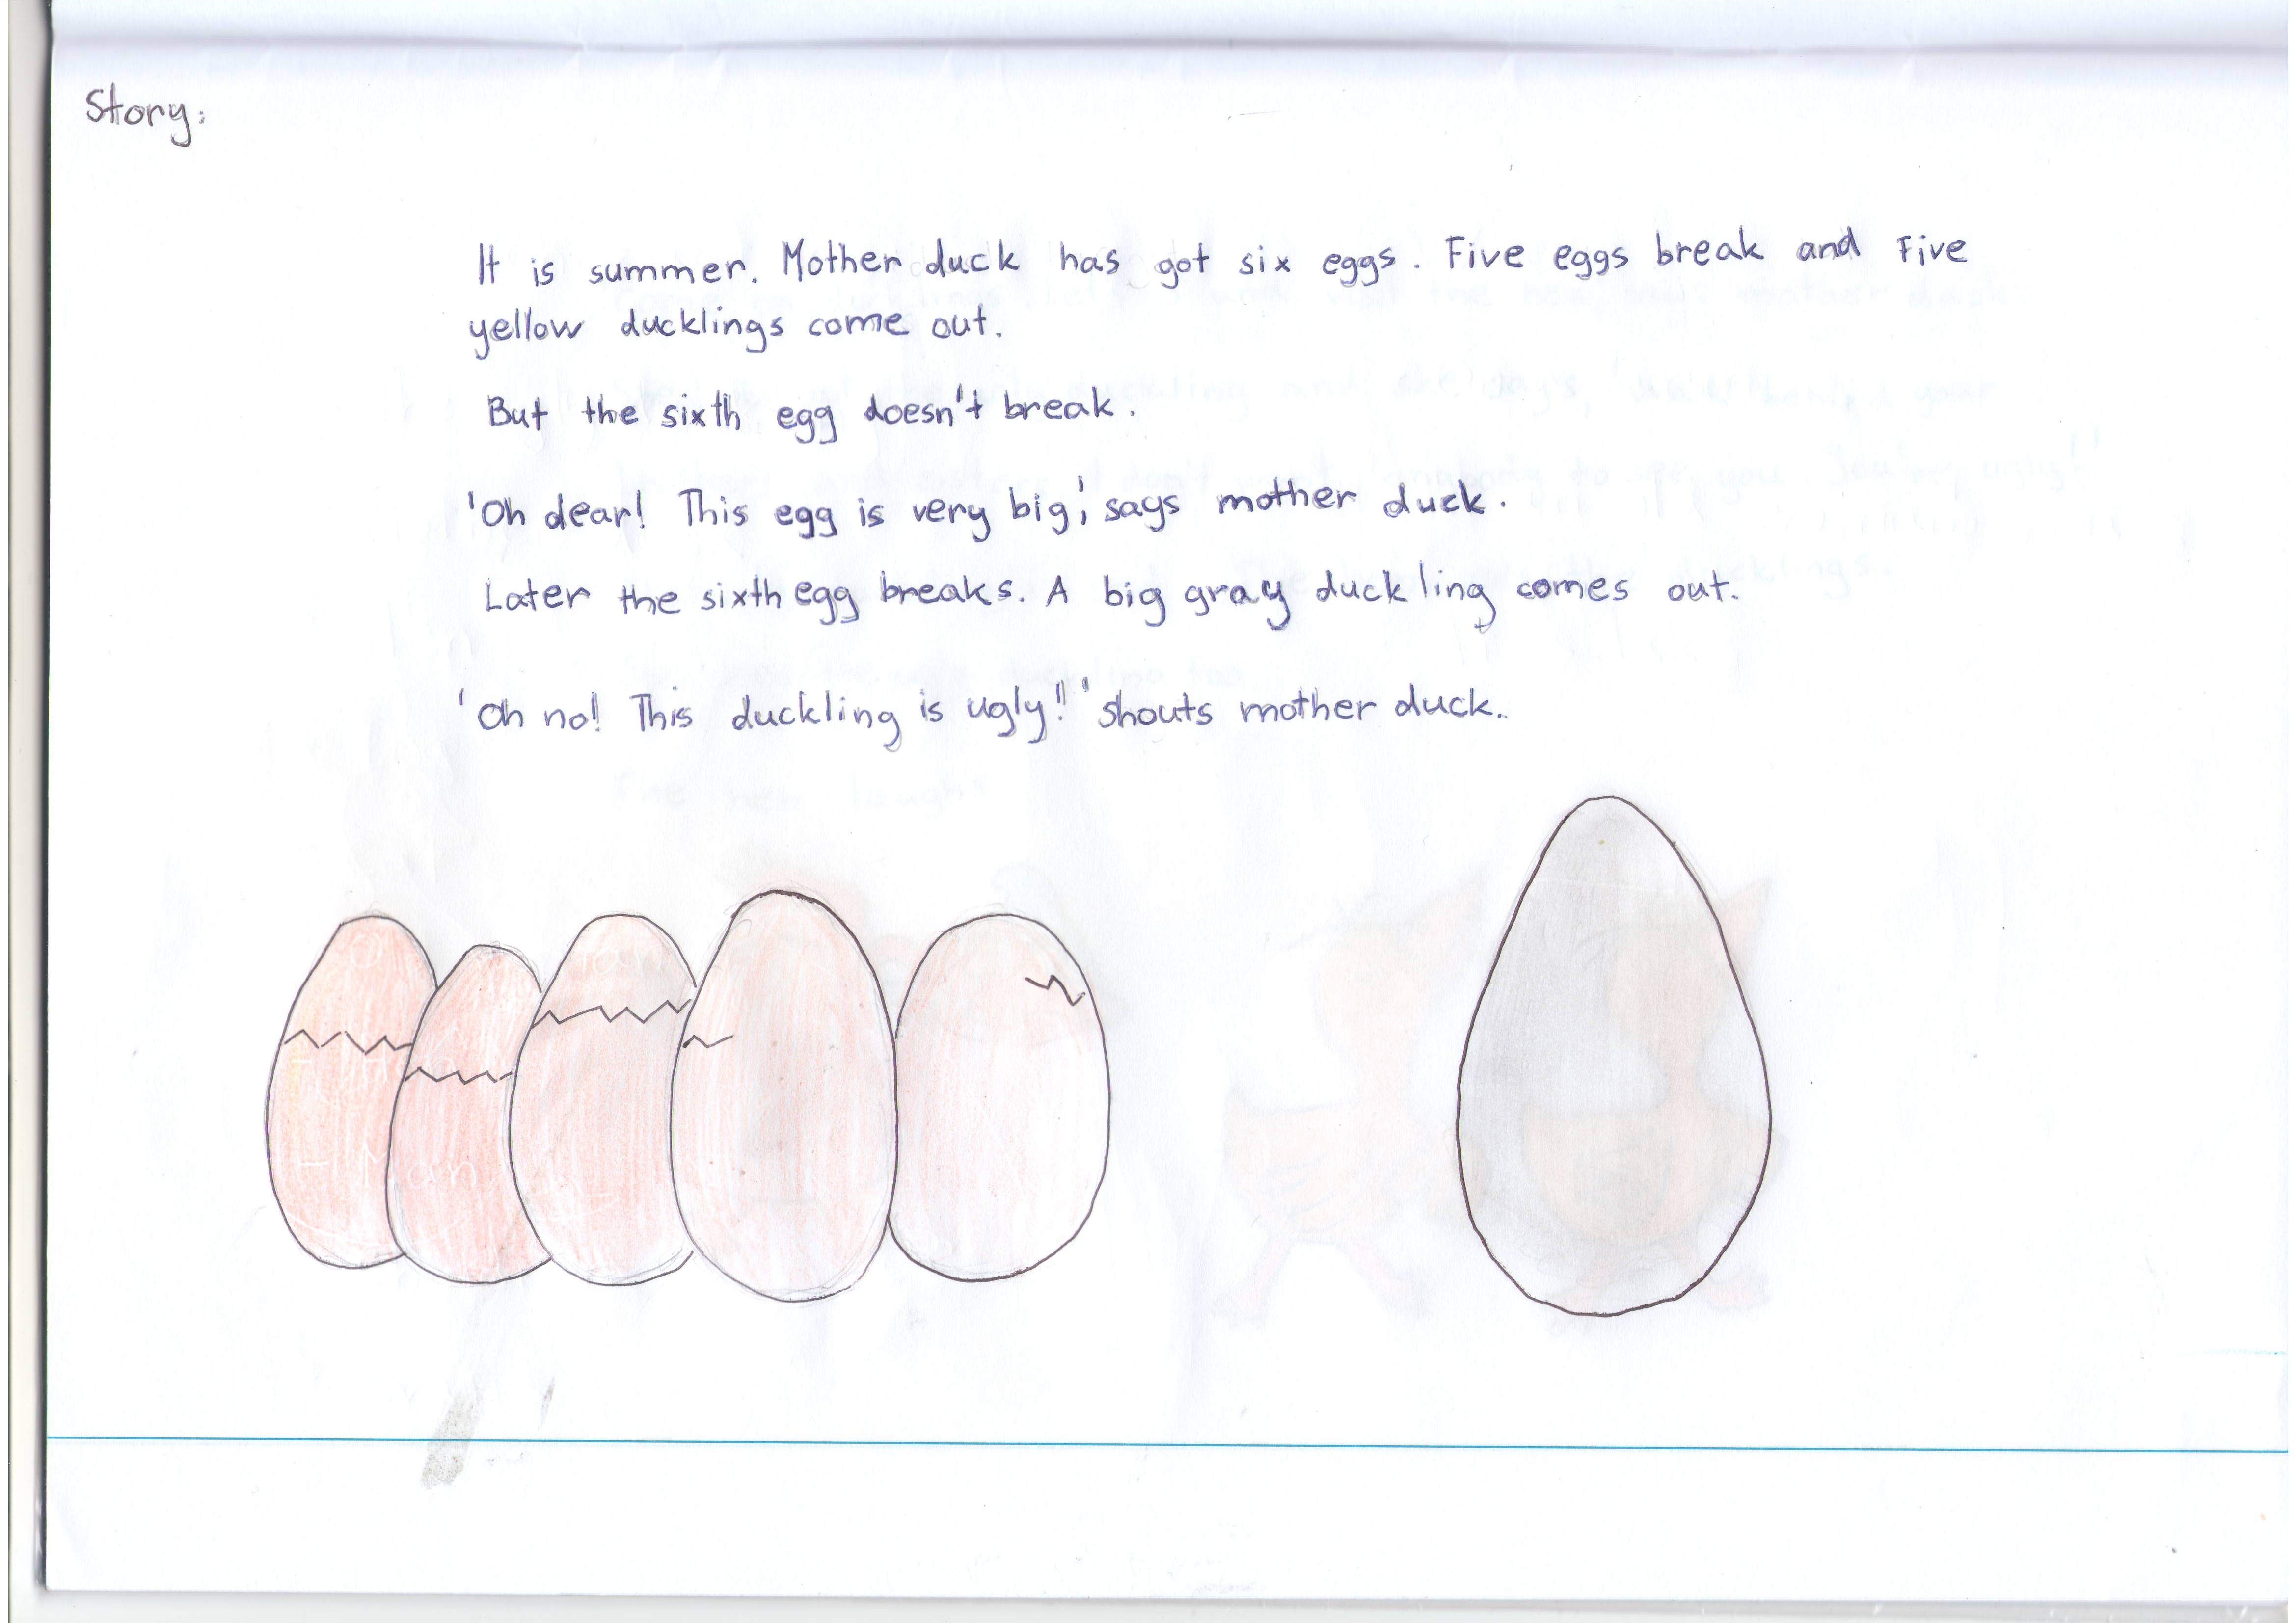 Story:
It is summer. Mother duck has got six eggs. Five eggs break and five
yellow ducklings come out.
But the sixth egg doesn't break.
'Oh dear! This egg is very big', says mother duck.
Later the sixth egg breaks. A big gray duckling comes out.
'Oh no! This duckling is ugly!!' shouts mother duck.